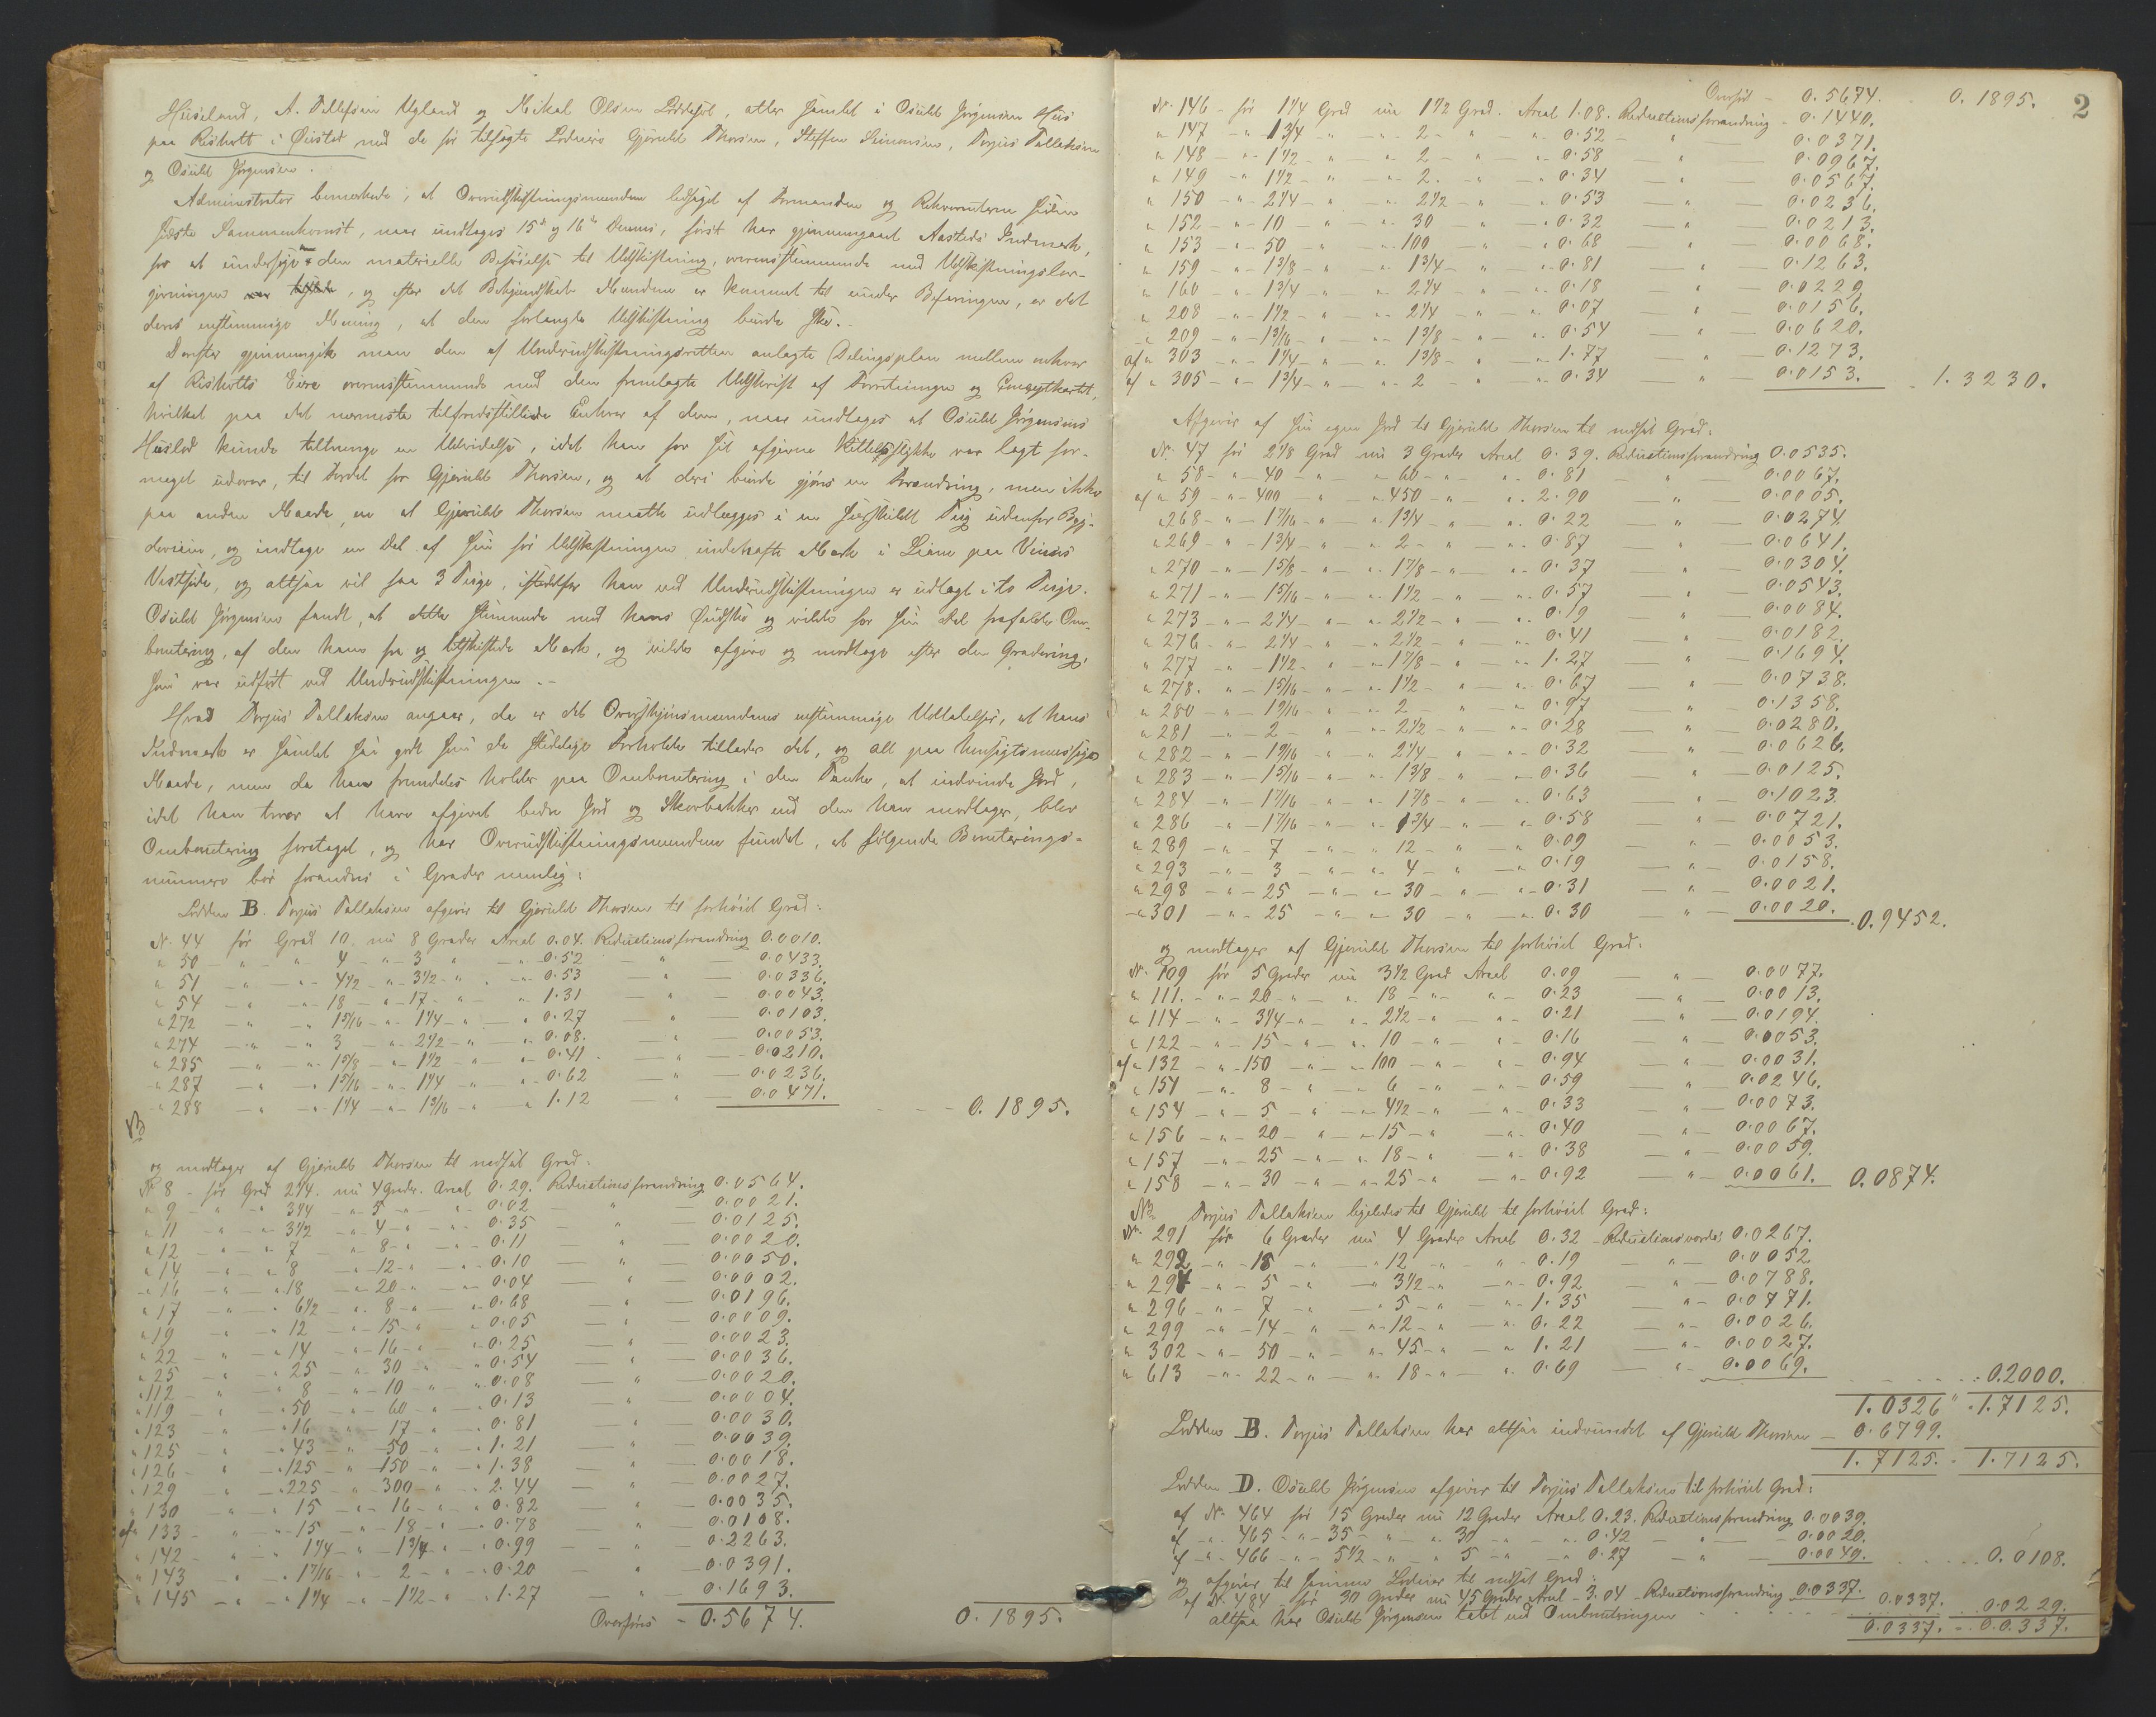 Huseland, A. Tellefsen Ugland og Mikal Olsen Løddesøl, atter samlet i Osuld Jørgensens Hus
paa Risholt i Øiestad med de før tilsagte Lodeiere Gjeruld Thorsen, Steffen Simonsen, Terjus Tallaksen
og Osuld Jørgensen.
Administrator bemerkede, at Overudskiftningsmændene ledsaget af Formanden og Rekvirenterne siden
sidste Sammenkomst, naar undtages 15de og 16de Dennes, først har gjennemgaaet Aastedets Indmark,
for at undersøge den materielle Beføielse til Udskiftning, overensstemmende med Udskiftningslov-
givningen, og efter det Bekjendtskab Mændene er kommet til under Befaringen, er det
deres enstemmige Mening, at den forlangte Udskiftning burde ske.
Derefter gjennemgik man den af Underudskiftningsretten anlagte Delingsplan mellem enhver
af Risholts Eiere overensstemmende med den fremlagte Udskrift af Forretningen og Conceptkartet,
hvilket paa det nærmeste tilfredsstillede Enhver af dem, naar undtages at Osuld Jørgensens
Huslod kunde tiltrænge en Udvidelse, idet han for sit afgivne Kittelsstykke var lagt for-
meget udover, til Fordel for Gjeruld Thorsen, og at deri burde gjøres en Forandring, men ikke
paa anden Maade, en at Gjeruld Thorsen maatte udlægges i en særskildt Teig udenfor Byg-
deveien, og indtage en Del af sin før Udskiftningen indehafte Mark i Liene paa Veiens
Vestside, og altsaa vil faa 3 Teige, istedetfor han ved Underudskiftningen er udlagt i to Teige.
Osuld Jørgensen fandt, at dette stemmede med hans Ønske og vilde for sin Del frafalde Om-
bonitering, af den ham fra og tilskiftede Mark, og vilde afgive og modtage efter den Gradering,
som var udført ved Underudskiftningen. -
Hvad Terjus Tallaksen angaar, da er det Overskjønsmændenes enstemmige Udtalelse, at hans
Indmark er samlet saa godt som de stedlige Forholde tillader det, og alt paa hensigtsmæssige
Maade, men da han fremdeles holder paa Ombonitering i den Tanke, at indvinde Jord,
idet han troer at have afgivet bedre Jord og Skovbakker end den han modtager, blev
Ombonitering foretaget, og har Overudskiftningsmændene fundet, at følgende Boniterings-
nummere bør forandres i Grader nemlig:
Lodden B. Terjus Tallaksen afgiver til Gjeruld Thorsen til forhøiet Grad:
Nr. 44 før Grad 10 nu 8 Grader Areal 0.04. Reductionsforandring 0.0010.
" 50 - " - " 4 - " 3 " - " 0.52 - " - 0.0433.
" 51 - " - " 4 1/2 - " 3 1/2 - " - " 0.53 - " - 0.0336.
" 54 - " - " 18 - " 17 - " - " 1.31 - " - 0.0043.
" 272 - " - " 15/16 - " 1 1/4 - " - " 0.27 - " - 0.0103.
" 274 - " - " 3 - " 2 1/2 - " - " 0.08. - " - 0.0053.
" 285 - " - " 15/8 - " 1 1/2 - " - " 0.41 - " - 0.0210.
" 287 - " - " 15/16 - " 1 1/4 - " - " 0.62 - " - 0.0236.
" 288 - " - " 1 1/4 - " 13/16 - " - " 1.12 - " - 0.0471. - - - 0.1895.
og modtager af Gjeruld Thorsen til nedsat Grad:
Nr. 8 - før Grad 2 1/4. nu 4 Grader. Areal 0.29. Reductionsforandring 0.0564.
" 9 - " - " 3 1/4 - " 5 - " - " 0.02 - " - 0.0021.
" 11 - " - " 3 1/2 - " 4 - " - " 0.35 - " - 0.0125.
" 12 - " - " 7 - " 8 - " - " 0.11 - " - 0.0020.
" 14 - " - " 8 - " 12 - " - " 0.10 - " - 0.0050.
" 16 - " - " 18 - " 20 - " - " 0.04 - " - 0.0002.
" 17 - " - " 6 1/2 - " 8 - " - " 0.68 - " - 0.0196.
" 19 - " - " 12 - " 15 - " - " 0.05 - " - 0.0009.
" 22 - " - " 14 - " 16 - " - " 0.25 - " - 0.0023.
" 25 - " - " 25 - " 30 - " - " 0.54 - " - 0.0036.
" 112 - " - " 8 - " 10 - " - " 0.08 - " - 0.0020.
" 119 - " - " 50 - " 60 - " - " 0.13 - " - 0.0004.
" 123 - " - " 16 - " 17 - " - " 0.81 - " - 0.0030.
" 125 - " - " 43 - " 50 - " - " 1.21 - " - 0.0039.
" 126 - " - " 125 - " 150 - " - " 1.38 - " - 0.0018.
" 129 - " - " 225 - " 300 - " - " 2.44 - " - 0.0027.
" 130 - " - " 15 - " 16 - " - " 0.82 - " - 0.0035.
af " 133 - " - " 15 - " 18 - " - " 0.78 - " - 0.0108.
" 142 - " - " 1 1/4 - " 1 3/4 - " - " 0.99 - " - 0.2263.
" 143 - " - " 17/16 - " 2 - " - " 0.20 - " - 0.0391.
" 145 - " - " 1 1/4 - " 1 1/2 - " - " 1.27 - " - 0.1693.
Overføres - 0.5674. 0.1895.
2
Overført - 0.5674. - 0.1895.
Nr. 146 - før 1 1/4 Grad nu 1 1/2 Grad. Areal 1.08. Reductionsforandring - 0.1440.
" 147 - " - 1 3/4 - " - " 2 - " - " 0.52 - " - 0.0371.
" 148 - " - 1 1/2 - " - " 2 - " - " 0.58 - " - 0.0967.
" 149 - " - 1 1/2 - " - " 2. - " - " 0.34 - " - 0.0567.
" 150 - " - 2 1/4 - " - " 2 1/2 - " - " 0.53 - " - 0.0236.
" 152 - " - 10 - " - " 30 - " - " 0.32 - " - 0.0213.
" 153 - " - 50 - " - " 100 - " - " 0.68 - " - 0.0068.
" 159 - " - 13/8 - " - " 1 3/4 - " - " 0.81 - " - 0.1263.
" 160 - " - 1 3/4 - " - " 2 1/4 - " - " 0.18 - " - 0.0229
" 208 - " - 1 1/2 - " - " 2 1/4 - " - " 0.07 - " - 0.0156.
" 209 - " - 13/16 - " - " 13/8 - " - " 0.54 - " - 0.0620.
af " 303 - " - 1 1/4 - " - " 13/8 - " - " 1.77 - " - 0.1273.
af " 305 - " - 1 3/4 - " - " 2 - " - " 0.34 - " - 0.0153. - 1.3230.
Afgiver af sin egen Jord til Gjeruld Thorsen til nedsat Grad:
Nr. 47 før 2 1/8 Grad nu 3 Grader Areal 0.39. Reductionsforandring 0.0535.
" 58 - " - 40 - " - " 60 - " - " 0.81 - " - 0.0067.
af " 59 - " - 400 - " - " 450 - " - " 2.90 - " - 0.0005.
" 268 - " - 17/16 - " - " 1 3/4 - " - " 0.22 - " - 0.0274
" 269 - " - 1 3/4 - " - " 2 - " - " 0.87 - " - 0.0641.
" 270 - " - 15/8 - " - " 17/8 - " - " 0.37 - " - 0.0304.
" 271 - " - 15/16 - " - " 1 1/2 - " - " 0.57 - " - 0.0543.
" 273 - " - 2 1/4 - " - " 2 1/2 - " - " 0.19 - " - 0.0084.
" 276 - " - 2 1/4 - " - " 2 1/2 - " - " 0.41 - " - 0.0182.
" 277 - " - 1 1/2 - " - " 17/8 - " - " 1.27 - " - 0.1694.
" 278. - " - 15/16 - " - " 1 1/2 - " - " 0.67 - " - 0.0738.
" 280 - " - 19/16 - " - " 2 - " - " 0.97 - " - 0.1358.
" 281 - " - 2 - " - " 2 1/2 - " - " 0.28 - " - 0.0280.
" 282 - " - 19/16 - " - " 2 1/4 - " - " 0.32 - " - 0.0626.
" 283 - " - 15/16 - " - " 13/8 - " - " 0.36 - " - 0.0125.
" 284 - " - 17/16 - " - " 17/8 - " - " 0.63 - " - 0.1023.
" 286 - " - 17/16 - " - " 1 3/4 - " - " 0.58 - " - 0.0721.
" 289 - " - 7 - " - " 12 - " - " 0.09 - " - 0.0053.
" 293 - " - 3 - " - " 4 - " - " 0.19 - " - 0.0158.
" 298 - " - 25 - " - " 30 - " - " 0.31 - " - 0.0021.
" 301 - " - 25 - " - " 30 - " - " 0.30 - " - 0.0020. 0.9452.
og modtager af Gjeruld Thorsen til forhøiet Grad:
Nr. 109 før 5 Grader nu 3 1/2 Grad Areal 0.09 - " - 0.0077.
" 111. - " - 20 - " - " 18 - " - " 0.23 - " - 0.0013.
" 114 - " - 3 1/4 - " - " 2 1/2 - " - " 0.21 - " - 0.0194.
" 122 - " - 15 - " - " 10 - " - " 0.16 - " - 0.0053.
af " 132 - " - 150 - " - " 100 - " - " 0.94 - " - 0.0031.
" 151 - " - 8 - " - " 6 - " - " 0.59 - " - 0.0246.
" 154 - " - 5 - " - " 4 1/2 - " - " 0.33 - " - 0.0073.
" 156 - " - 20 - " - " 15 - " - " 0.40 - " - 0.0067.
" 157 - " - 25 - " - " 18 - " - " 0.38 - " - 0.0059.
" 158 - " - 30 - " - " 25 - " - " 0.92 - " - 0.0061. 0.0874.
Terjus Tallaksen ligeledes til Gjeruld til forhøiet Grad:
Nr. 291 før 6 Grader nu 4 Grader Areal 0.32 - Reductionsværdi 0.0267.
" 292 - " - 18 - " - " 12 - " - " 0.19 - " - 0.0052
" 294 - " - 5 - " - " 3 1/2 - " - " 0.92 - " - 0.0788.
" 296 - " - 7 - " - " 5 - " - " 1.35 - " - 0.0771.
" 299 - " - 14 - " - " 12 - " - " 0.22 - " - 0.0026.
" 302 - " - 50 - " - " 45 - " - " 1.21 - " - 0.0027.
" 613 - " - 22 - " - " 18 - " - " 0.69 - " - 0.0069. 0.2000.
1.0326 " 1.7125.
Lodden B. Terjus Tallaksen har altsaa indvundet af Gjeruld Thorsen - 0.6799.
1.7125. - 1.7125.
Lodden D. Osuld Jørgensen afgiver til Terjus Tallaksen til forhøiet Grad:
af Nr. 464 før 15 Grader nu 12 Grader Areal 0.23. Reductionsforandring 0.0039.
af - " 465 - " - 35 - " - " 30 - " - " 0.42 - " - 0.0020.
af - " 466 - " - 5 1/2 - " - " 5 - " - " 0.27 - " - 0.0049. - 0.0108.
og afgiver til samme Lodeier til nedsat Grad:
af Nr. 484 - før 30 Grader nu 45 Grader Areal - 3.04 - Reductionsforandring 0.0337. 0.0337.
altsaa har Osuld Jørgensen tabt ved Omboniteringen - - - 0.0229.
0.0337. - 0.0337.